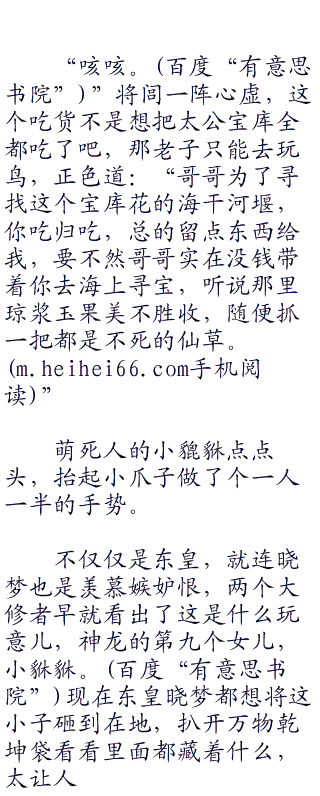 “咳咳。(百度“有意思
书院”)”将闾一阵心虚，这
个吃货不是想把太公宝库全
都吃了吧，那老子只能去玩
鸟，正色道：“哥哥为了寻
找这个宝库花的海干河堰，
你吃归吃，总的留点东西给
我，要不然哥哥实在没钱带
着你去海上寻宝，听说那里
琼浆玉果美不胜收，随便抓
一把都是不死的仙草。
(m.heihei66.com手机阅
读)”
萌死人的小貔貅点点
头，抬起小爪子做了个一人
一半的手势。
不仅仅是东皇，就连晓
梦也是羡慕嫉妒恨，两个大
修者早就看出了这是什么玩
意儿，神龙的第九个女儿，
小貅貅。(百度“有意思书
院”)现在东皇晓梦都想将这
小子砸到在地，扒开万物乾
坤袋看看里面都藏着什么，
太让人